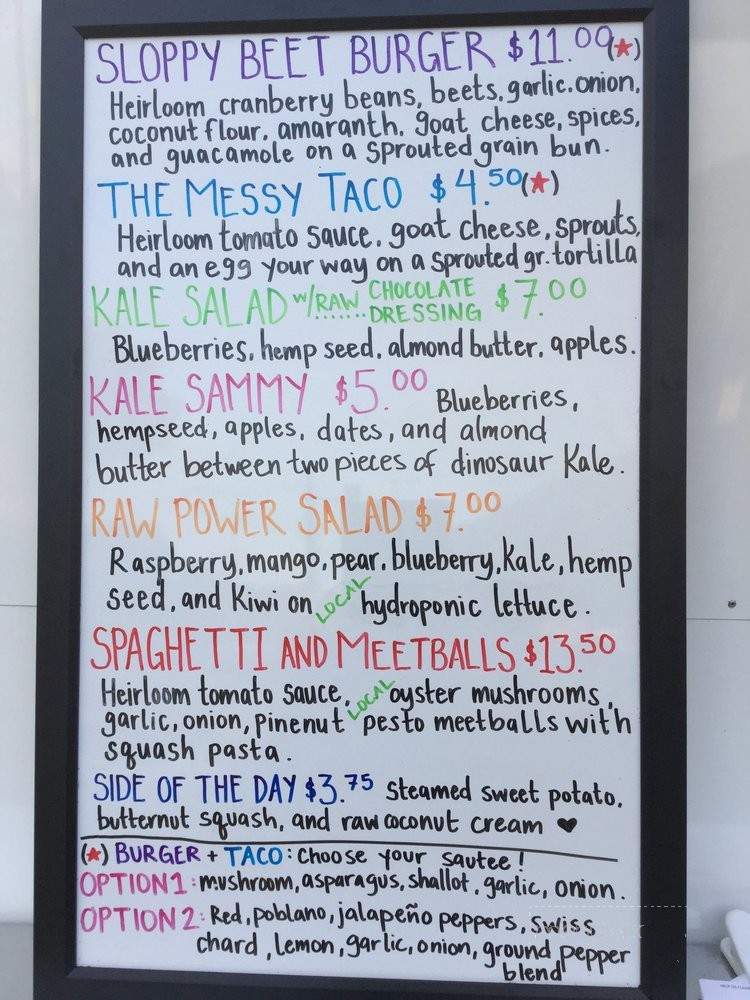 SLOPPY BEET BURGER $11.00(★)
Heirloom cranberry beans, beets, garlic, onion,
coconut flour, amaranth, goat cheese, spices,
and guacamole on a sprouted grain bun.
THE MESSY TACO $4.50(★)
Heirloom tomato sauce, goat cheese, sprouts,
and an egg your way on a sprouted gr. tortilla
KALE SALAD W/RAW CHOCOLATE DRESSING $7.00
Blueberries, hemp seed, almond butter, apples.
KALE SAMMY $5.00 Blueberries,
hempseed, apples, dates, and almond
butter between two pieces of dinosaur Kale.
RAW POWER SALAD $7.00
Raspberry, mango, pear, blueberry, Kale, hemp
seed, and Kiwi on LOCAL hydroponic lettuce.
SPAGHETTI AND MEETBALLS $13.50
Heirloom tomato sauce, LOCAL oyster mushrooms,
garlic, onion, pinenut pesto meetballs with
squash pasta.
SIDE OF THE DAY $3.75 Steamed sweet potato,
butternut squash, and raw coconut cream ♥
(★) BURGER + TACO: Choose your sautee!
OPTION 1: mushroom, asparagus, shallot, garlic, onion.
OPTION 2: Red, poblano, jalapeño peppers, swiss
chard, lemon, garlic, onion, ground pepper
blend